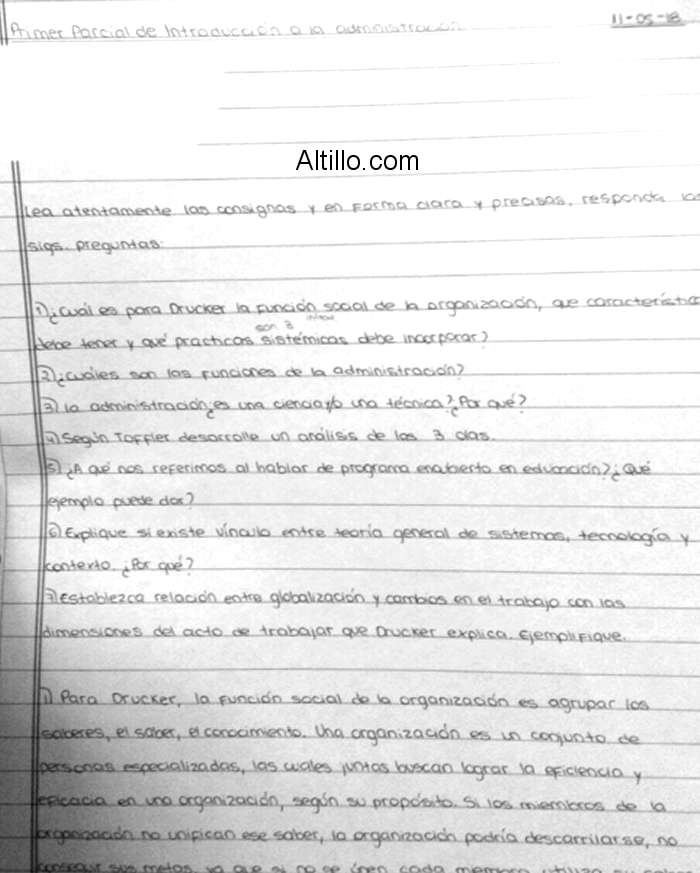 Primer Parcial de Introducción a la administración 11-05-18
Altillo.com
Lea atentamente las consignas y en Forma clara y precisas, responda las
sigs. preguntas:
1) ¿Cuál es para Drucker la función social de la organización, que característica
son 3
debe tener y qué practicas sistémicas debe incorporar?
2) ¿Cuáles son las funciones de la administración?
3) La administración ¿es una ciencia y/o una técnica? ¿Por qué?
4) Según Toffler desarrolle un análisis de las 3 olas.
5) ¿A qué nos referimos al hablar de programa encubierto en educación? ¿Qué
ejemplo puede dar?
6) Explique si existe vínculo entre teoría general de sistemas, tecnología y
contexto. ¿Por qué?
7) Establezca relación entre globalización y cambios en el trabajo con las
dimensiones del acto de trabajar que Drucker explica. Ejemplifique.
1) Para Drucker, la función social de la organización es agrupar los
saberes, el saber, el conocimiento. Una organización es un conjunto de
personas especializadas, las cuales juntas buscan lograr la eficiencia y
eficacia en una organización, según su propósito. Si los miembros de la
organización no unifican ese saber, la organización podría descarrilarse, no
conseguir sus metas ya que si no se únen cada miembro utiliza su